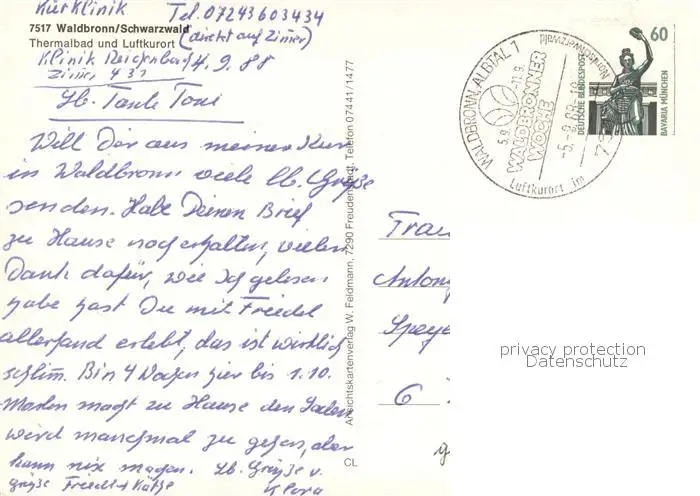 Kurklinik Tel. 07243603434
7517 Waldbronn/Schwarzwald (direkt auf Zimmer)
Thermalbad und Luftkurort
Klinik Reichenbach 4.9.88
Zimmer 431
Lb. Tante Toni
Will Dir aus meiner Kur
in Waldbronn viele lb. Grüße
senden. Habe Deinen Brief
zu Hause noch erhalten, vielen
Dank dafür, wie ich gelesen
habe hast Du mit Friedel
allerhand erlebt, das ist wirklich
schlim. Bin 4 Wochen hier bis 1.10.
macht zu Hause den Laden
wird manchmal zu gehen, aber
kann nix machen. Lb. Grüße v.
Grüße Friedel + Klara
Ansichtskartenverlag W. Feldmann, 7290 Freudenstadt, Telefon 07441/1477
CL
WALDBRONN, ALBTAL 1
5.9. - 11.9.
WALDBRONNER
WOCHE
Luftkurort im
Nordschwarzwald
-5.-9.88
DEUTSCHE BUNDESPOST
60
BAVARIA MÜNCHEN
Frau
Antony
Speye
6
privacy protection
Datenschutz